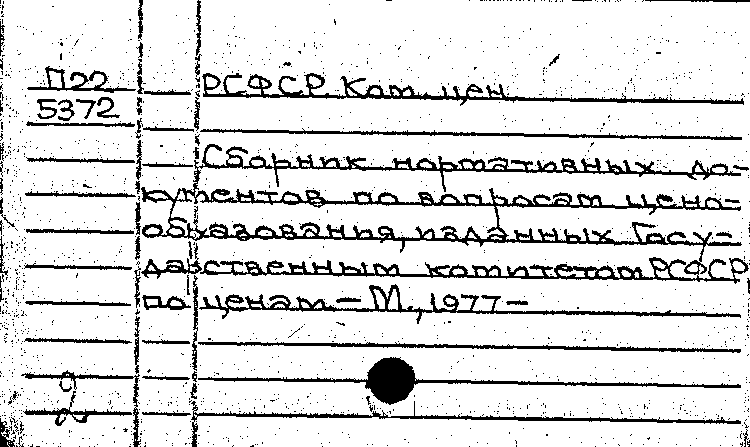 П22
5372
РСФСР. Ком. цен
Сборник нормативных до-
кументов по вопросам цено-
образования, изданных Госу-
дарственным комитетом РСФСР
по ценам – М., 1977 –
2